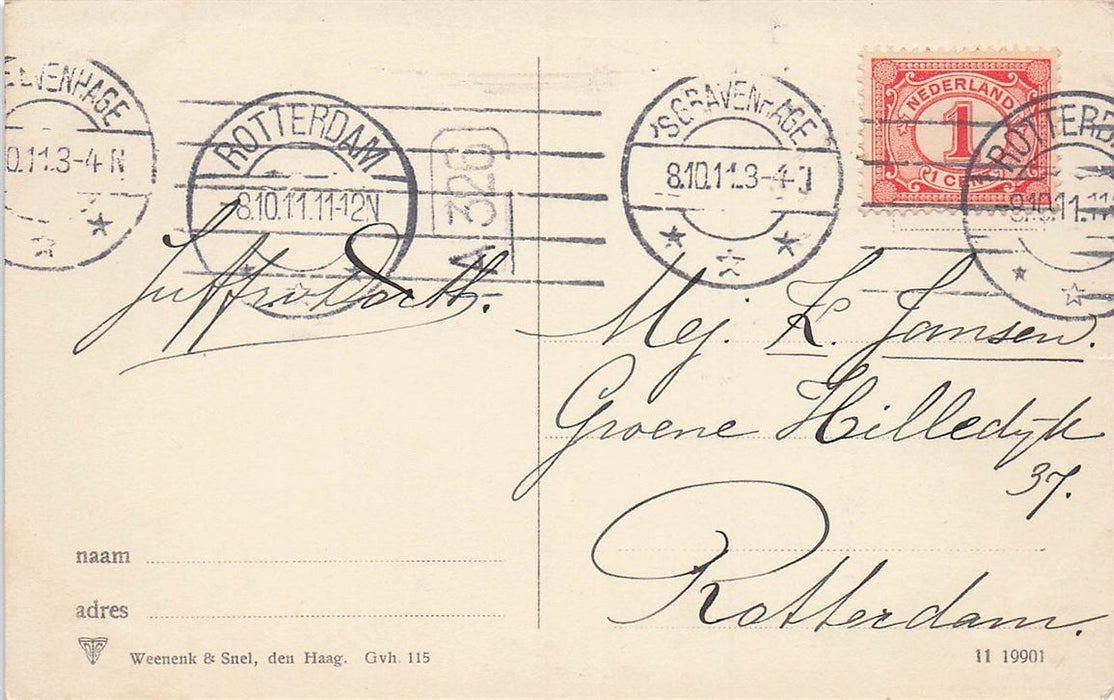 'SGRAVENHAGE
8.10.11.3-4 N
ROTTERDAM
-8.10.11.11-12N
A 326
'SGRAVENHAGE
8.10.11.3-4
NEDERLAND
1
1 CENT
ROTTERDA
-8.10.11.11
Mej. K. Jansen.
Groene Hilledijk
37.
Rotterdam.
naam
adres
Weenenk & Snel, den Haag. Gvh. 115
11 19901